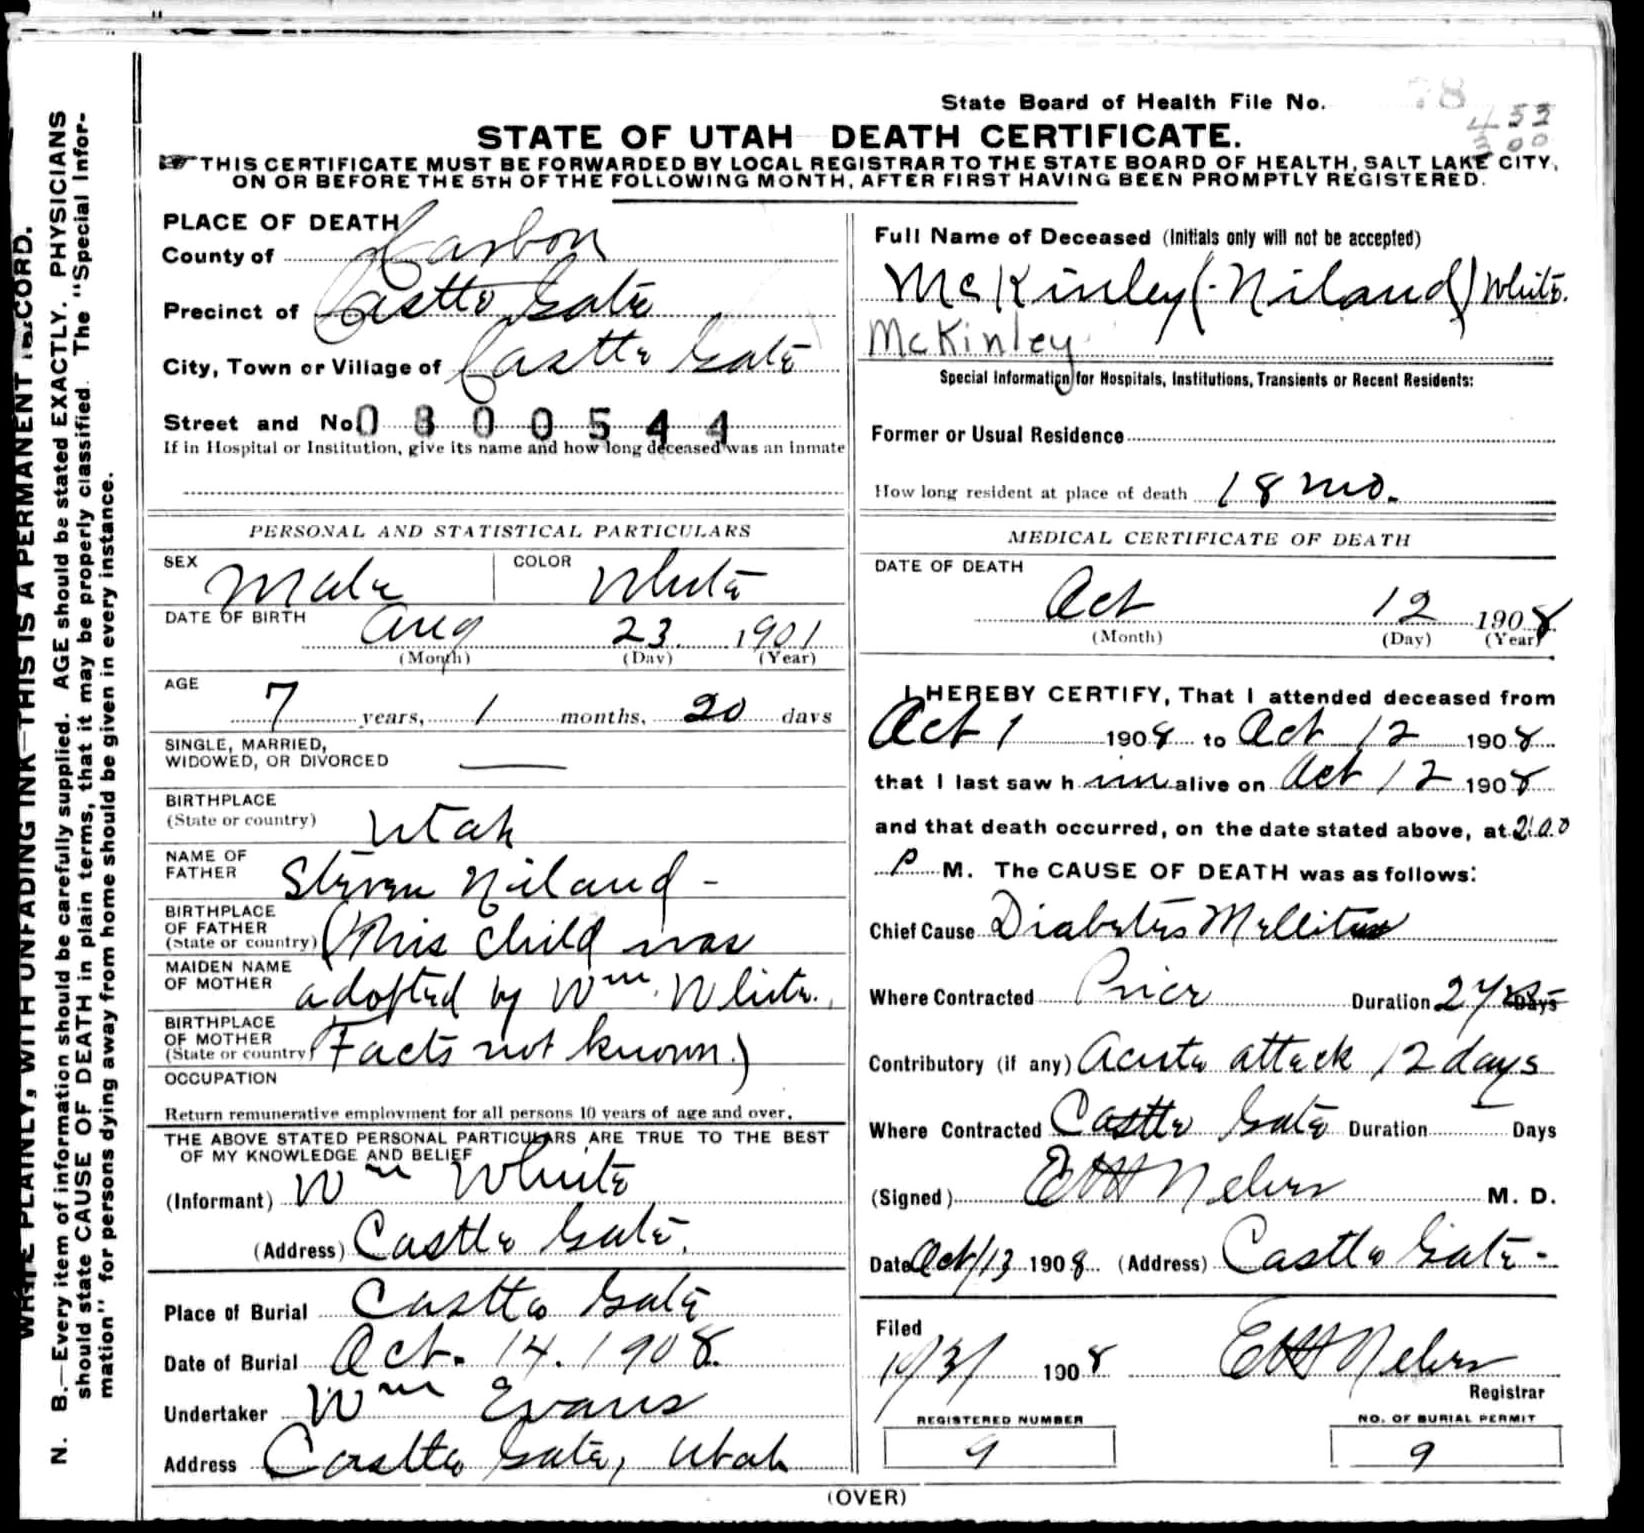 State Board of Health File No.
78
453
300
STATE OF UTAH DEATH CERTIFICATE.
THIS CERTIFICATE MUST BE FORWARDED BY LOCAL REGISTRAR TO THE STATE BOARD OF HEALTH, SALT LAKE CITY,
ON OR BEFORE THE 5TH OF THE FOLLOWING MONTH, AFTER FIRST HAVING BEEN PROMPTLY REGISTERED.
WRITE PLAINLY, WITH UNFADING INK—THIS IS A PERMANENT RECORD.
N. B.—Every item of information should be carefully supplied. AGE should be stated EXACTLY. PHYSICIANS
should state CAUSE OF DEATH in plain terms, that it may be properly classified. The "Special Infor-
mation" for persons dying away from home should be given in every instance.
PLACE OF DEATH
County of Carbon
Precinct of Castle Gate
City, Town or Village of Castle Gate
Street and No. 0800544
If in Hospital or Institution, give its name and how long deceased was an inmate
PERSONAL AND STATISTICAL PARTICULARS
SEX Male COLOR White
DATE OF BIRTH Aug 23. 1901
(Month) (Day) (Year)
AGE
7 years, 1 months, 20 days
SINGLE, MARRIED,
WIDOWED, OR DIVORCED
BIRTHPLACE
(State or country) Utah
NAME OF
FATHER Steven Niland -
BIRTHPLACE
OF FATHER
(State or country) (This child was
MAIDEN NAME
OF MOTHER adopted by Wm. White.
BIRTHPLACE
OF MOTHER
(State or country) Facts not known.)
OCCUPATION
Return remunerative employment for all persons 10 years of age and over.
THE ABOVE STATED PERSONAL PARTICULARS ARE TRUE TO THE BEST
OF MY KNOWLEDGE AND BELIEF
(Informant) Wm White
(Address) Castle Gate.
Place of Burial Castle Gate
Date of Burial Oct. 14. 1908.
Undertaker Wm Evans
Address Castle Gate, Utah
Full Name of Deceased (Initials only will not be accepted)
McKinley (Niland) White.
McKinley
Special Information for Hospitals, Institutions, Transients or Recent Residents:
Former or Usual Residence
How long resident at place of death 18 mo.
MEDICAL CERTIFICATE OF DEATH
DATE OF DEATH
Oct 12 1908
(Month) (Day) (Year)
I HEREBY CERTIFY, That I attended deceased from
Oct 1 1908 to Oct 12 1908
that I last saw him alive on Oct 12 1908
and that death occurred, on the date stated above, at 2:00
P M. The CAUSE OF DEATH was as follows:
Chief Cause Diabetes Mellitus
Where Contracted Price Duration 2 yrs Days
Contributory (if any) Acute attack 12 days
Where Contracted Castle Gate Duration Days
(Signed) M. D.
Date Oct/13 1908 (Address) Castle Gate -
Filed
10/31 1908
Registrar
REGISTERED NUMBER
9
NO. OF BURIAL PERMIT
9
(OVER)